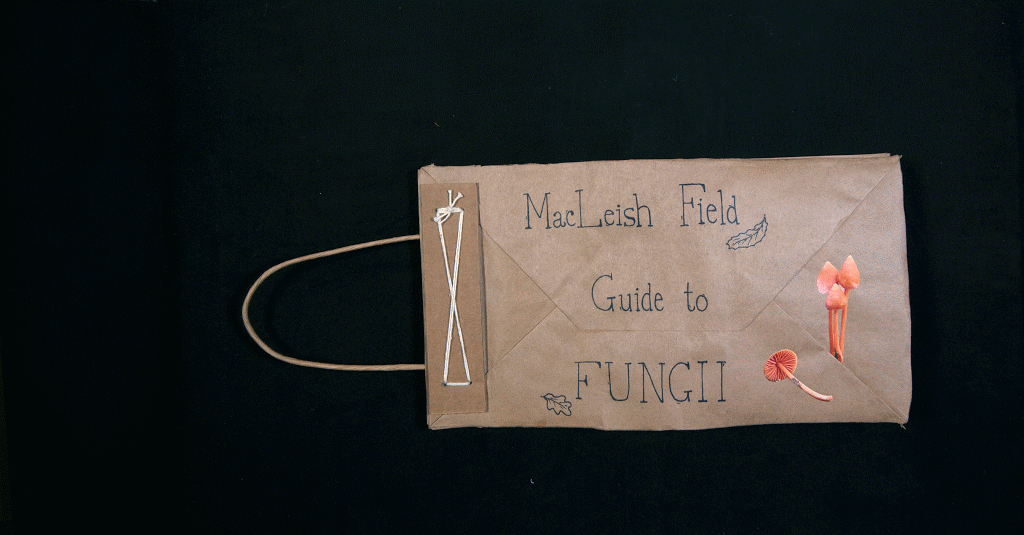 MacLeish Field
Guide to
FUNGII